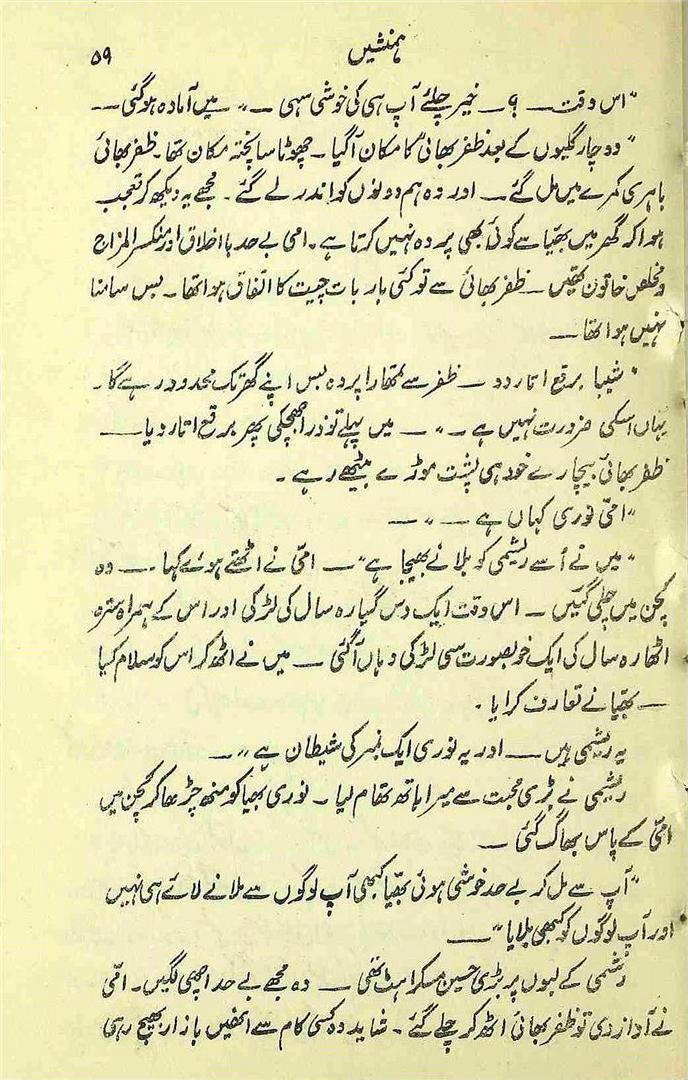 ہمنشیں
۵۹
"اس وقت ــ ؟ ــ خیر چلئے آپ ہی کی خوشی سہی ــ" ــ میں آمادہ ہوگئی ــ
"دو چار گلیوں کے بعد ظفر بھائی کا مکان آگیا ۔ چھوٹا سا پختہ مکان تھا ۔ ظفر بھائی
باہری کمرے میں مل گئے ــ اور وہ ہم دونوں کو اندر لے گئے ۔ مجھے یہ دیکھ کر تعجب
ہوا کہ گھر میں بھیّا سے کوئی بھی پردہ نہیں کرتا ہے ۔ امی بے حد با اخلاق اور منکسر المزاج
و مخلص خاتون تھیں ــ ظفر بھائی سے تو کئی بار بات چیت کا اتفاق ہوا تھا ۔ بس سامنا
نہیں ہوا تھا ــ
"شیبا برقع اتار دو ــ ظفر سے تمہارا پردہ بس اپنے گھر تک محدود رہے گا ۔
یہاں اسکی ضرورت نہیں ہے ــ" ــ میں پہلے تو ذرا جھجکی پھر برقع اتار دیا ــ
ظفر بھائی بیچارے خود ہی پشت موڑے بیٹھے رہے ۔
"امّی نوری کہاں ہے ــ" ــ
"میں نے اُسے ریشمی کو بلانے بھیجا ہے" ــ امّی نے اٹھتے ہوئے کہا ــ وہ
کچن میں چلی گئیں ــ اس وقت ایک دس گیارہ سال کی لڑکی اور اس کے ہمراہ سترہ
اٹھارہ سال کی ایک خوبصورت سی لڑکی وہاں آگئی ــ میں نے اٹھ کر اس کو سلام کیا
ــ بھیّا نے تعارف کرایا ۔
یہ ریشمی ہیں ــ اور یہ نوری ایک نمبر کی شیطان ہے" ــ
ریشمی نے بڑی محبت سے میرا ہاتھ تھام لیا ۔ نوری بھیا کو منھ چڑھا کر کچن میں
امّی کے پاس بھاگ گئی ــ
"آپ سے مل کر بے حد خوشی ہوئی بھیّا کبھی آپ لوگوں سے ملانے لائے ہی نہیں
اور آپ لوگوں کو کبھی بلایا" ــ
رشمی کے لبوں پر بڑی حسین مسکراہٹ تھی ــ وہ مجھے بے حد اچھی لگیں ۔ امّی
نے آواز دی تو ظفر بھائی اٹھ کر چلے گئے ۔ شاید وہ کسی کام سے انھیں بازار بھیج رہی